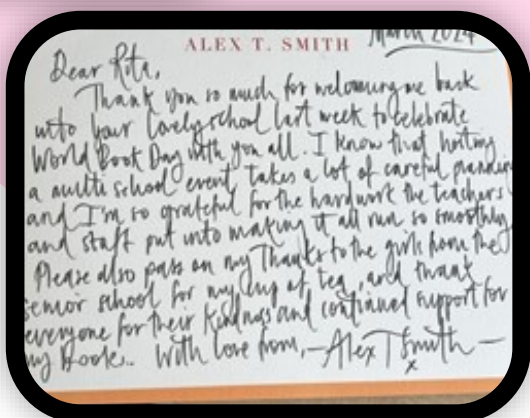 ALEX T. SMITH
March 2024
Dear Rita,
Thank you so much for welcoming me back
into your lovely school last week to celebrate
World Book Day with you all. I know that hosting
a multi school event takes a lot of careful planning
and I'm so grateful for the hardwork the teachers
and staff put into making it all run so smoothly
Please also pass on my Thanks to the girls from the
senior school for my cup of tea, and thank
everyone for their kindness and continued support for
my Books. With love from, —Alex T Smith—
x